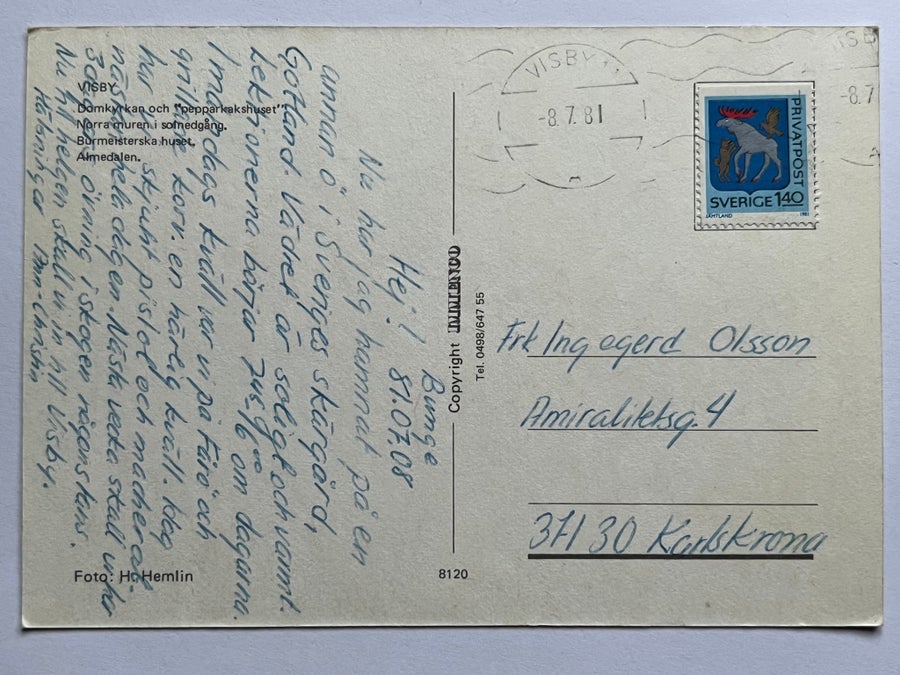 VISBY
Domkyrkan och "pepparkakshuset".
Norra muren i solnedgång.
Burmeisterska huset.
Almedalen.
Foto: H. Hemlin
8120
Copyright
Tel. 0498/647 55
VISBY
-8.7.81
-8.7
PRIVATPOST
SVERIGE 140
JÄMTLAND 1981
Bunge
81.07.08
Hej!
Nu har jag hamnat på en
annan ö i Sveriges skärgård,
Gotland. Vädret är soligt och varmt.
Lektionerna börjar 745/800 om dagarna.
I måndags kväll var vi på Fårö och
grillade korv. en härlig kväll. Idag
har vi skjutit pistol och macherat
nästan hela dagen. Nästa vecka skall vi ha
övning i skogen någonstans.
Nu till helgen skall vi in till Visby.
Hälsningar Ann-Christin
Frk Ingegerd Olsson
Amiralitetsg. 4
371 30 Karlskrona